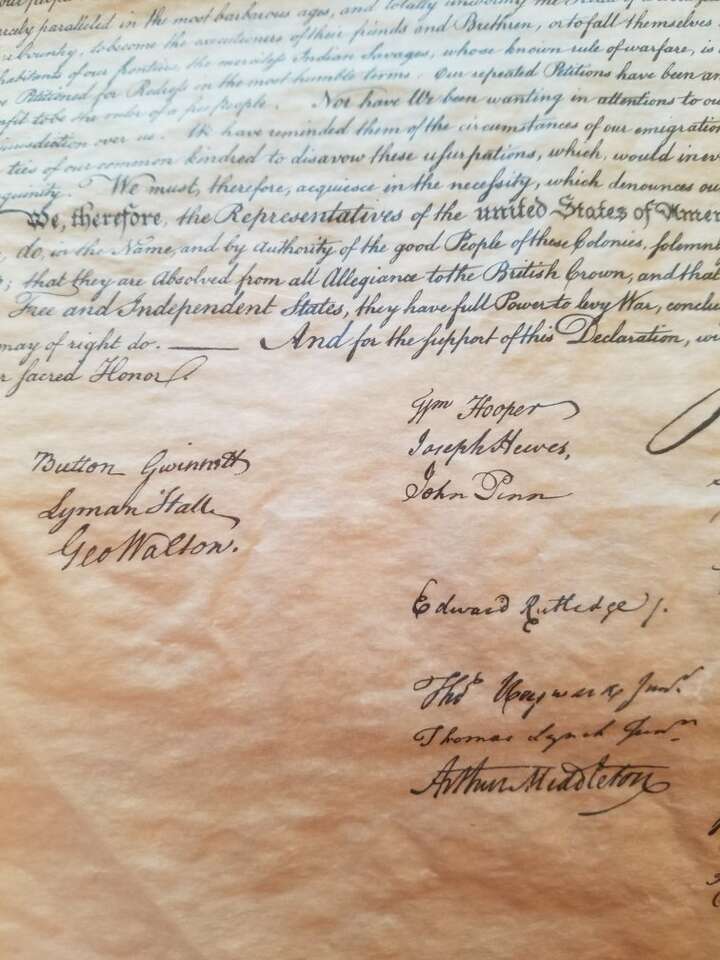 paralleled in the most barbarous ages, and totally
Country, to become the executioners of their friends and Brethren, or to fall themselves
inhabitants of our frontiers, the merciless Indian Savages, whose known rule of warfare, is
Petitioned for Redress in the most humble terms. Our repeated Petitions have been an
fit to be the ruler of a free people. Nor have We been wanting in attentions to ou
jurisdiction over us. We have reminded them of the circumstances of our emigration
ties of our common kindred to disavow these usurpations, which, would inev
We must, therefore, acquiesce in the necessity, which denounces ou
We, therefore, the Representatives of the united States of Amer
do, in the Name, and by Authority of the good People of these Colonies, solemn
; that they are Absolved from all Allegiance to the British Crown, and that
Free and Independent States, they have full Power to levy War, conclu
may of right do. — And for the support of this Declaration, wi
r sacred Honor.
Button Gwinnett
Lyman Hall
Geo Walton.
Wm Hooper
Joseph Hewes,
John Penn
Edward Rutledge /.
Thos Heyward Junr.
Thomas Lynch Junr.
Arthur Middleton